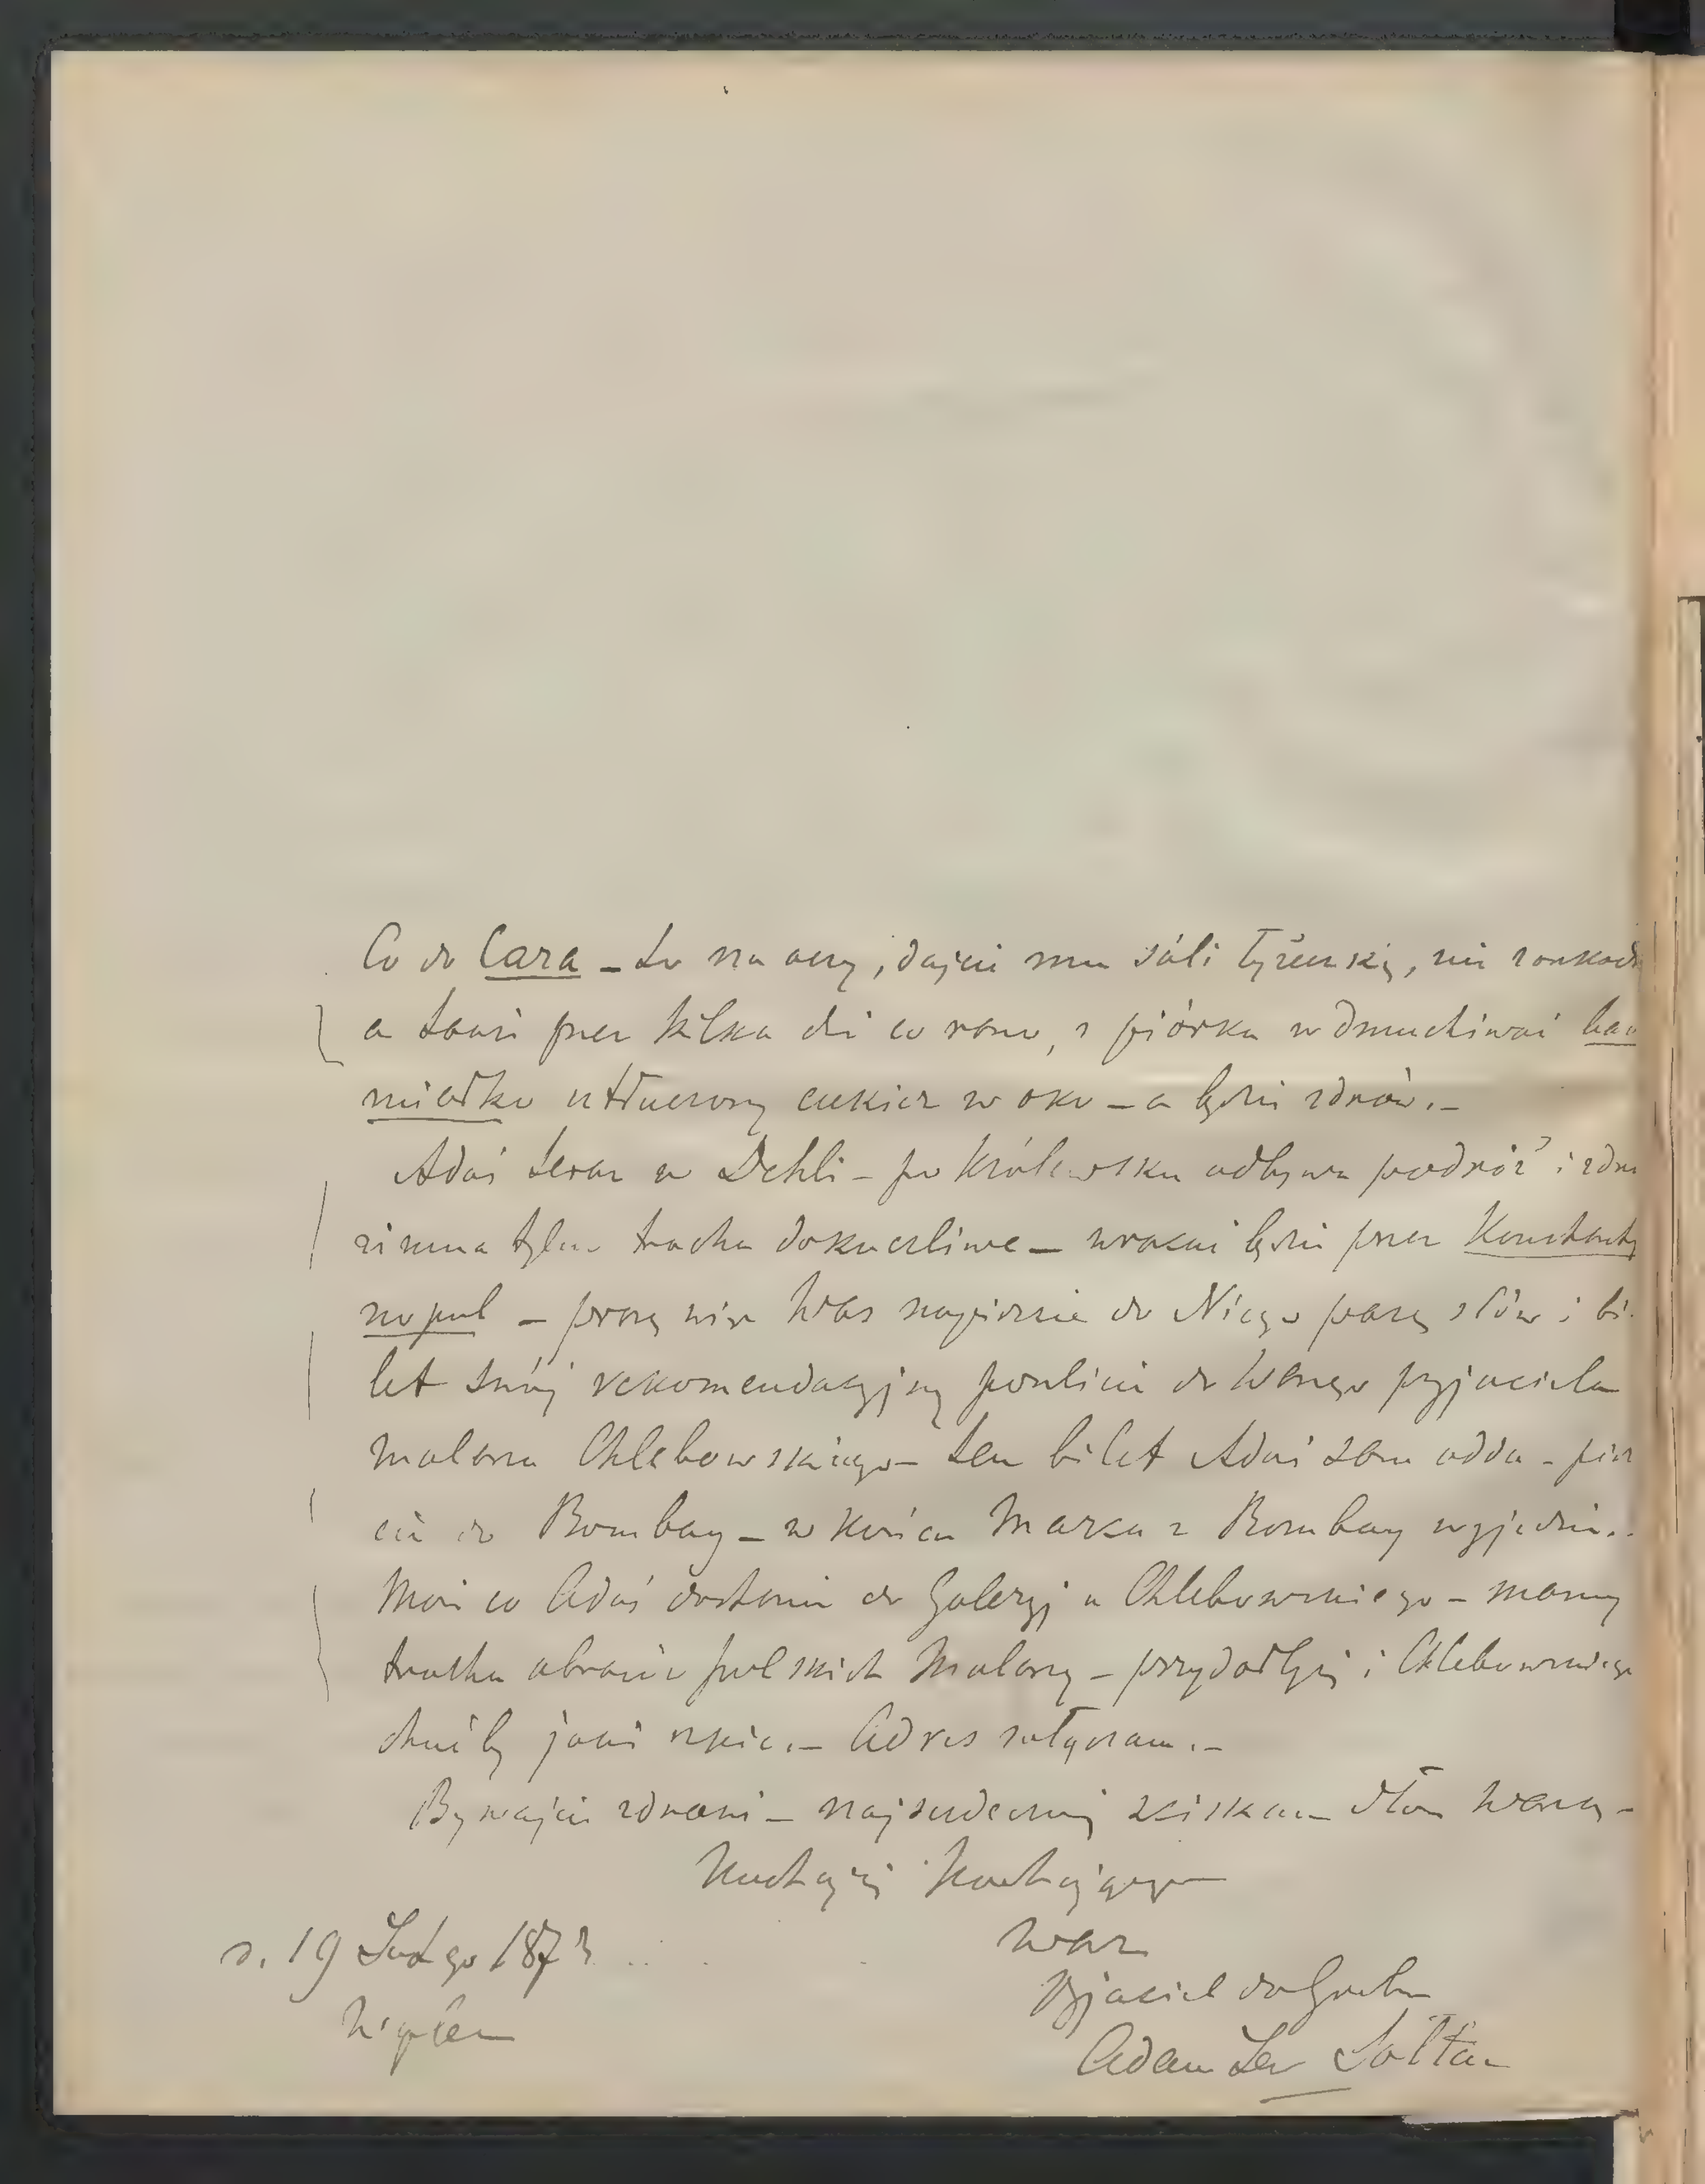 Co do Cara – to na oczy, dajcie mu sóli łyżeczkę, nie
a
przez kilka dni co rano, z piórka wdmuchiwać
miałko utłuczony cukier w oko – a będzie zdrów. –
Adaś teraz w Dehli – po Królewsku odbywa podróż i
zimna tylko trocha dokuczliwe – wracać będzie przez Konstanty
nopol – proszę więc Was napiszcie do Niego parę słów i bi-
let swój rekomendacyjny poslicie do Wanego przyjaciela
malarza Chlebowskiego – ten bilet Adaś sam odda –
cie do Bombay – w końcu Marca z Bombay wyjedzie. -
Może co Adaś dostanie do Galeryj u Chlebowskiego – mamy
trocha obrazów polskich Malarzy – przydałby się i Chlebowskiego
choćby jaki szkic. – Adres załączam. –
Bywajcie zdrowi – najserdeczniej ściskam dłoń Waszą –
Kochający Kochającego
Wasz
przyjaciel dozgonny
Adam Lew Sołtan
d. 19 Lutego 1873